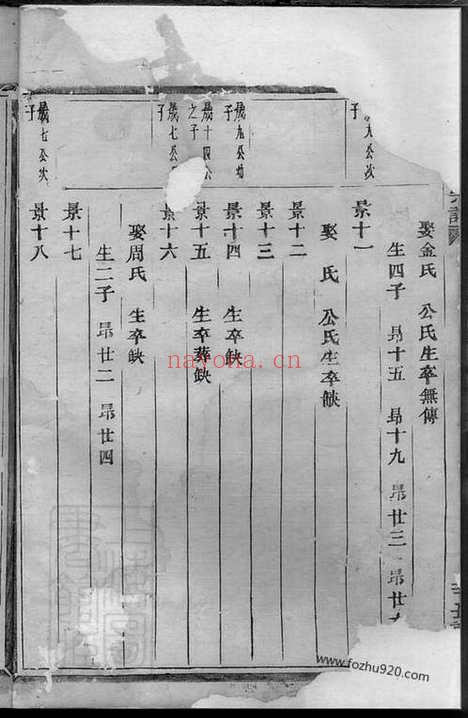 娶金氏 公氏生卒無傳
生四子 昻十五 昻十九 昻廿三 昻廿
公次
子
景十一
娶 氏 公氏生卒缺
景十二
景十三
歲九公幼
子
景十四 生卒缺
歲十四公
之子
景十五 生卒葬缺
歲七公
子
景十六
娶周氏 生卒缺
生二子 昻廿二 昻廿四
景十七
歲七公次
子
景十八
nayona.cn
www.fozhu920.com